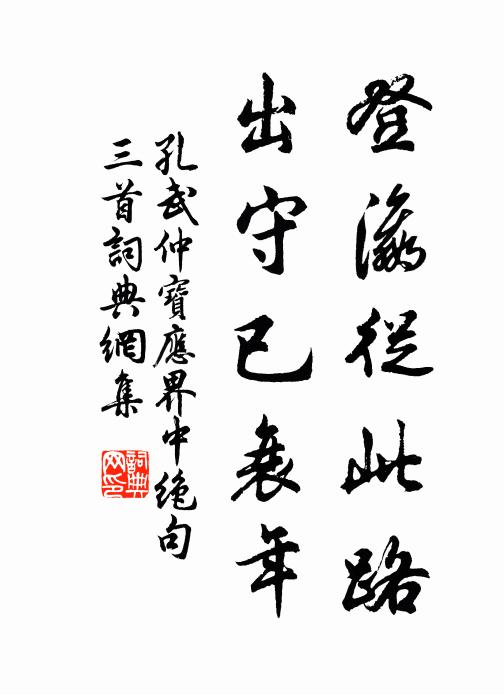 登瀛從此路
出守已衰年
孔武仲寶應界中絶句
三首詞典網集
詞典网印